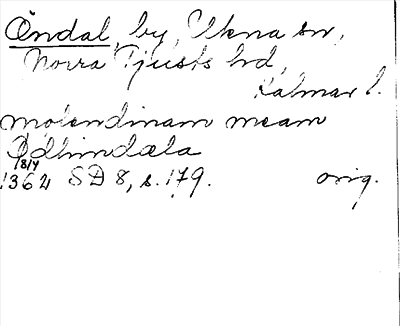 Öndal, by, Ukna sn,
Norra Tjusts hd,
Kalmar l.
molendinam meam
Ødhindæla
18/4
1364 SD 8, s. 179. orig.